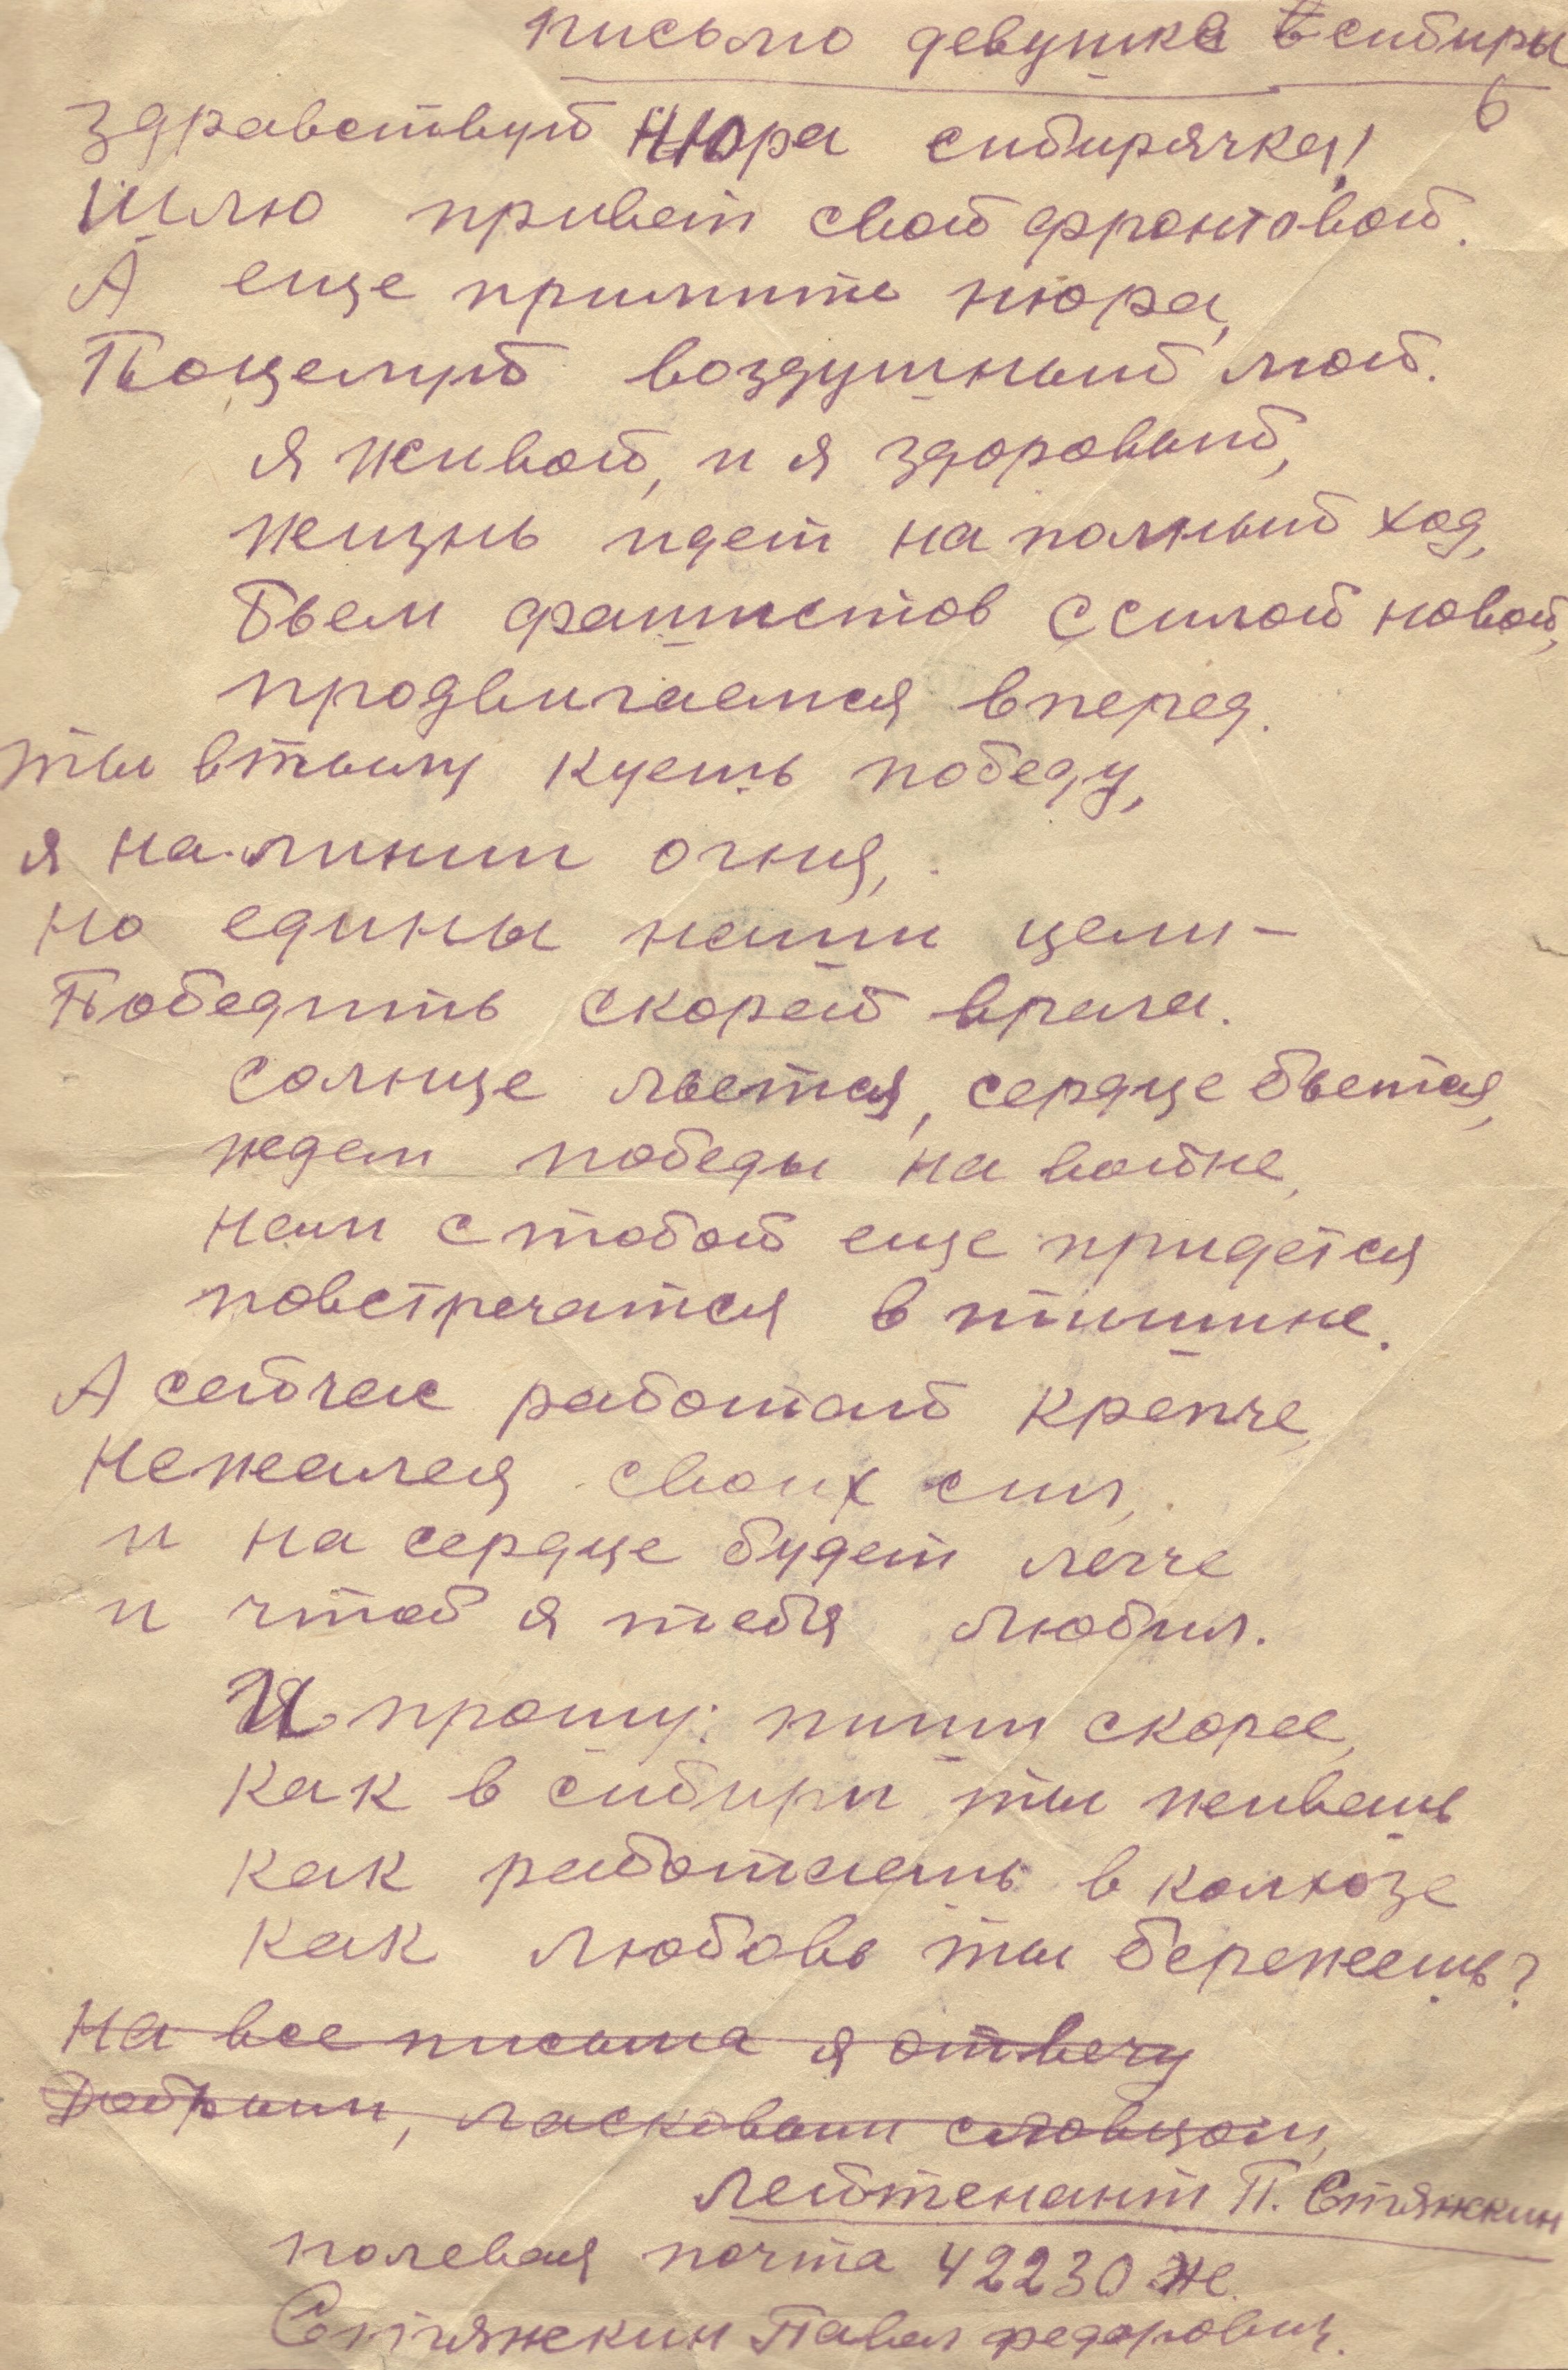 письмо девушке в сибирь
6
Здравствуй Нюра сибирячка!
Шлю привет свой фронтовой.
А еще примите нюра,
Поцелуй воздушный мой.
Я живой, и я здоровый,
жизнь идет на полный ход,
бьем фашистов с силой новой,
продвигаемся вперед.
ты в тылу куешь победу,
я на линии огня,
но едины наши цели –
Победить скорей врага.
солнце льется, сердце бьется,
ждем победы на войне,
нам с тобой еще придется
повстречатся в тишине.
А сейчас работай крепче,
Не жалея своих сил,
и на сердце будет легче
и чтоб я тебя любил.
Я прошу: пиши скорее,
как в сибири ты живешь
как работаешь в колхозе
как любовь ты бережешь?
На все письма я отвечу
Добрым, ласковым словцом,
лейтенант П. Стяжкин
полевая почта 42230 Ж.
Стяжкин Павел федорович.